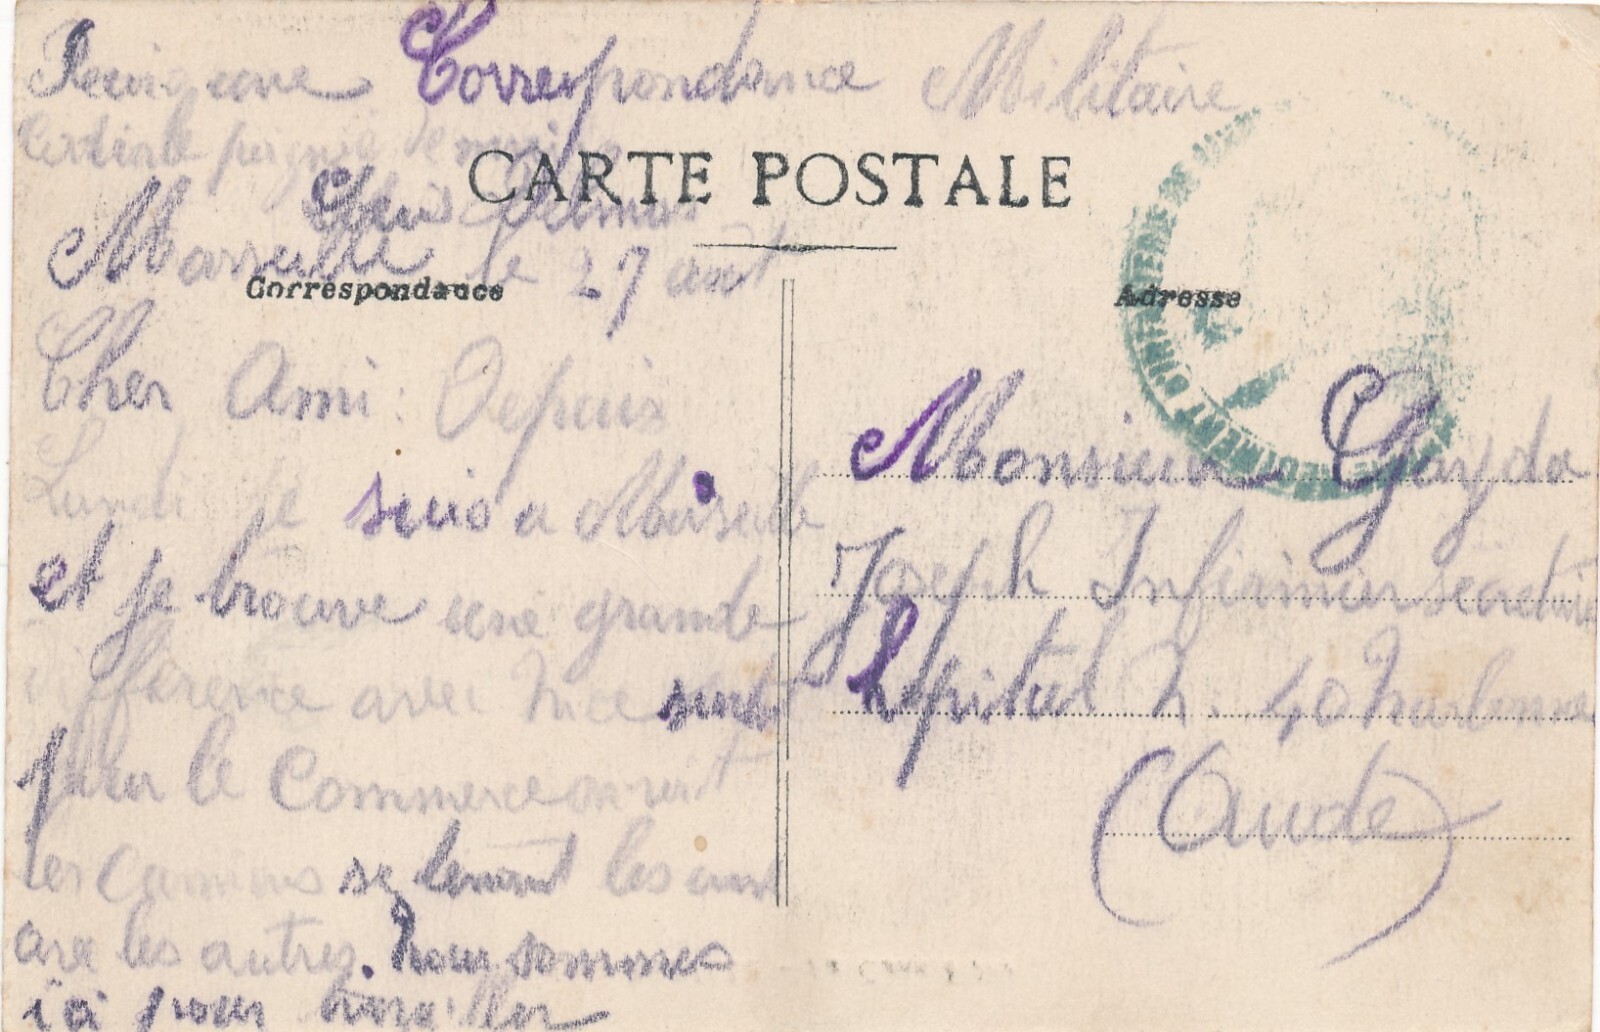 Correspondance Militaire
CARTE POSTALE
Marseille le 27 aut
Correspondance
Adresse
Cher Ami : Depuis
Lundi je suis a Marseille
et je trouve une grande
difference avec Nice surt
pour le commerce on voit
les camions se tenant les uns
avec les autres. nous sommes
ici pour travailler
Monsieur Gayda
Joseph Infirmier secretaire
hopital N. 40 Narbonne
(Aude)
REGIMENT D'INFANTERIE